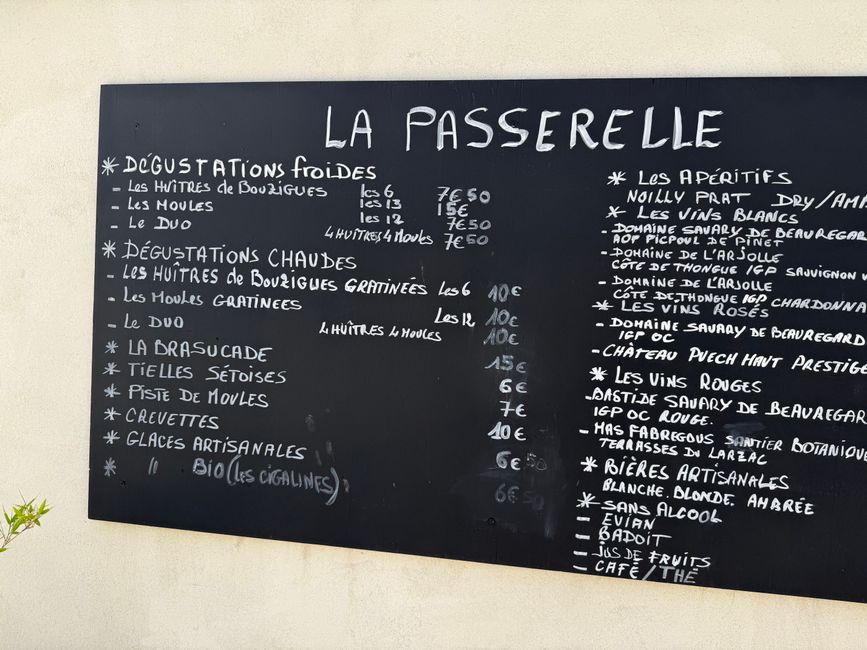 LA PASSERELLE
* DÉGUSTATIONS FROIDES
- LES HUÎTRES de BOUZIGUES les 6 7€50
les 13 15€
- LES MOULES les 12 7€50
- LE DUO 4 HUÎTRES 4 MOULES 7€50
* DÉGUSTATIONS CHAUDES
- LES HUÎTRES de BOUZIGUES GRATINÉES les 6 10€
- LES MOULES GRATINEES Les 12 10€
- LE DUO 4 HUÎTRES 4 MOULES 10€
* LA BRASUCADE 15€
* TIELLES SÉTOISES 6€
* PISTE DE MOULES 7€
* CREVETTES 10€
* GLACES ARTISANALES 6€50
* " BIO (LES CIGALINES) 6€50
* LES APÉRITIFS
NOILLY PRAT DRY/AM
* LES VINS BLANCS
- DOMAINE SAVARY DE BEAUREGAR
AOP PICPOUL DE PINET
- DOMAINE DE L'ARJOLLE
CÔTE DE THONGUE IGP SAUVIGNON
- DOMAINE DE L'ARJOLLE
CÔTE DE THONGUE IGP CHARDONNA
* LES VINS ROSÉS
- DOMAINE SAVARY DE BEAUREGARD
IGP OC
- CHÂTEAU PUECH HAUT PRESTIGE
* LES VINS ROUGES
- BASTIDE SAVARY DE BEAUREGAR
IGP OC ROUGE.
- MAS FABREGOUS SANTIER BOTANIQUE
TERRASSES DU LARZAC
* BIÈRES ARTISANALES
BLANCHE. BLONDE. AMBRÉE
* SANS ALCOOL
- EVIAN
- BADOIT
- JUS DE FRUITS
- CAFÉ/THÉ